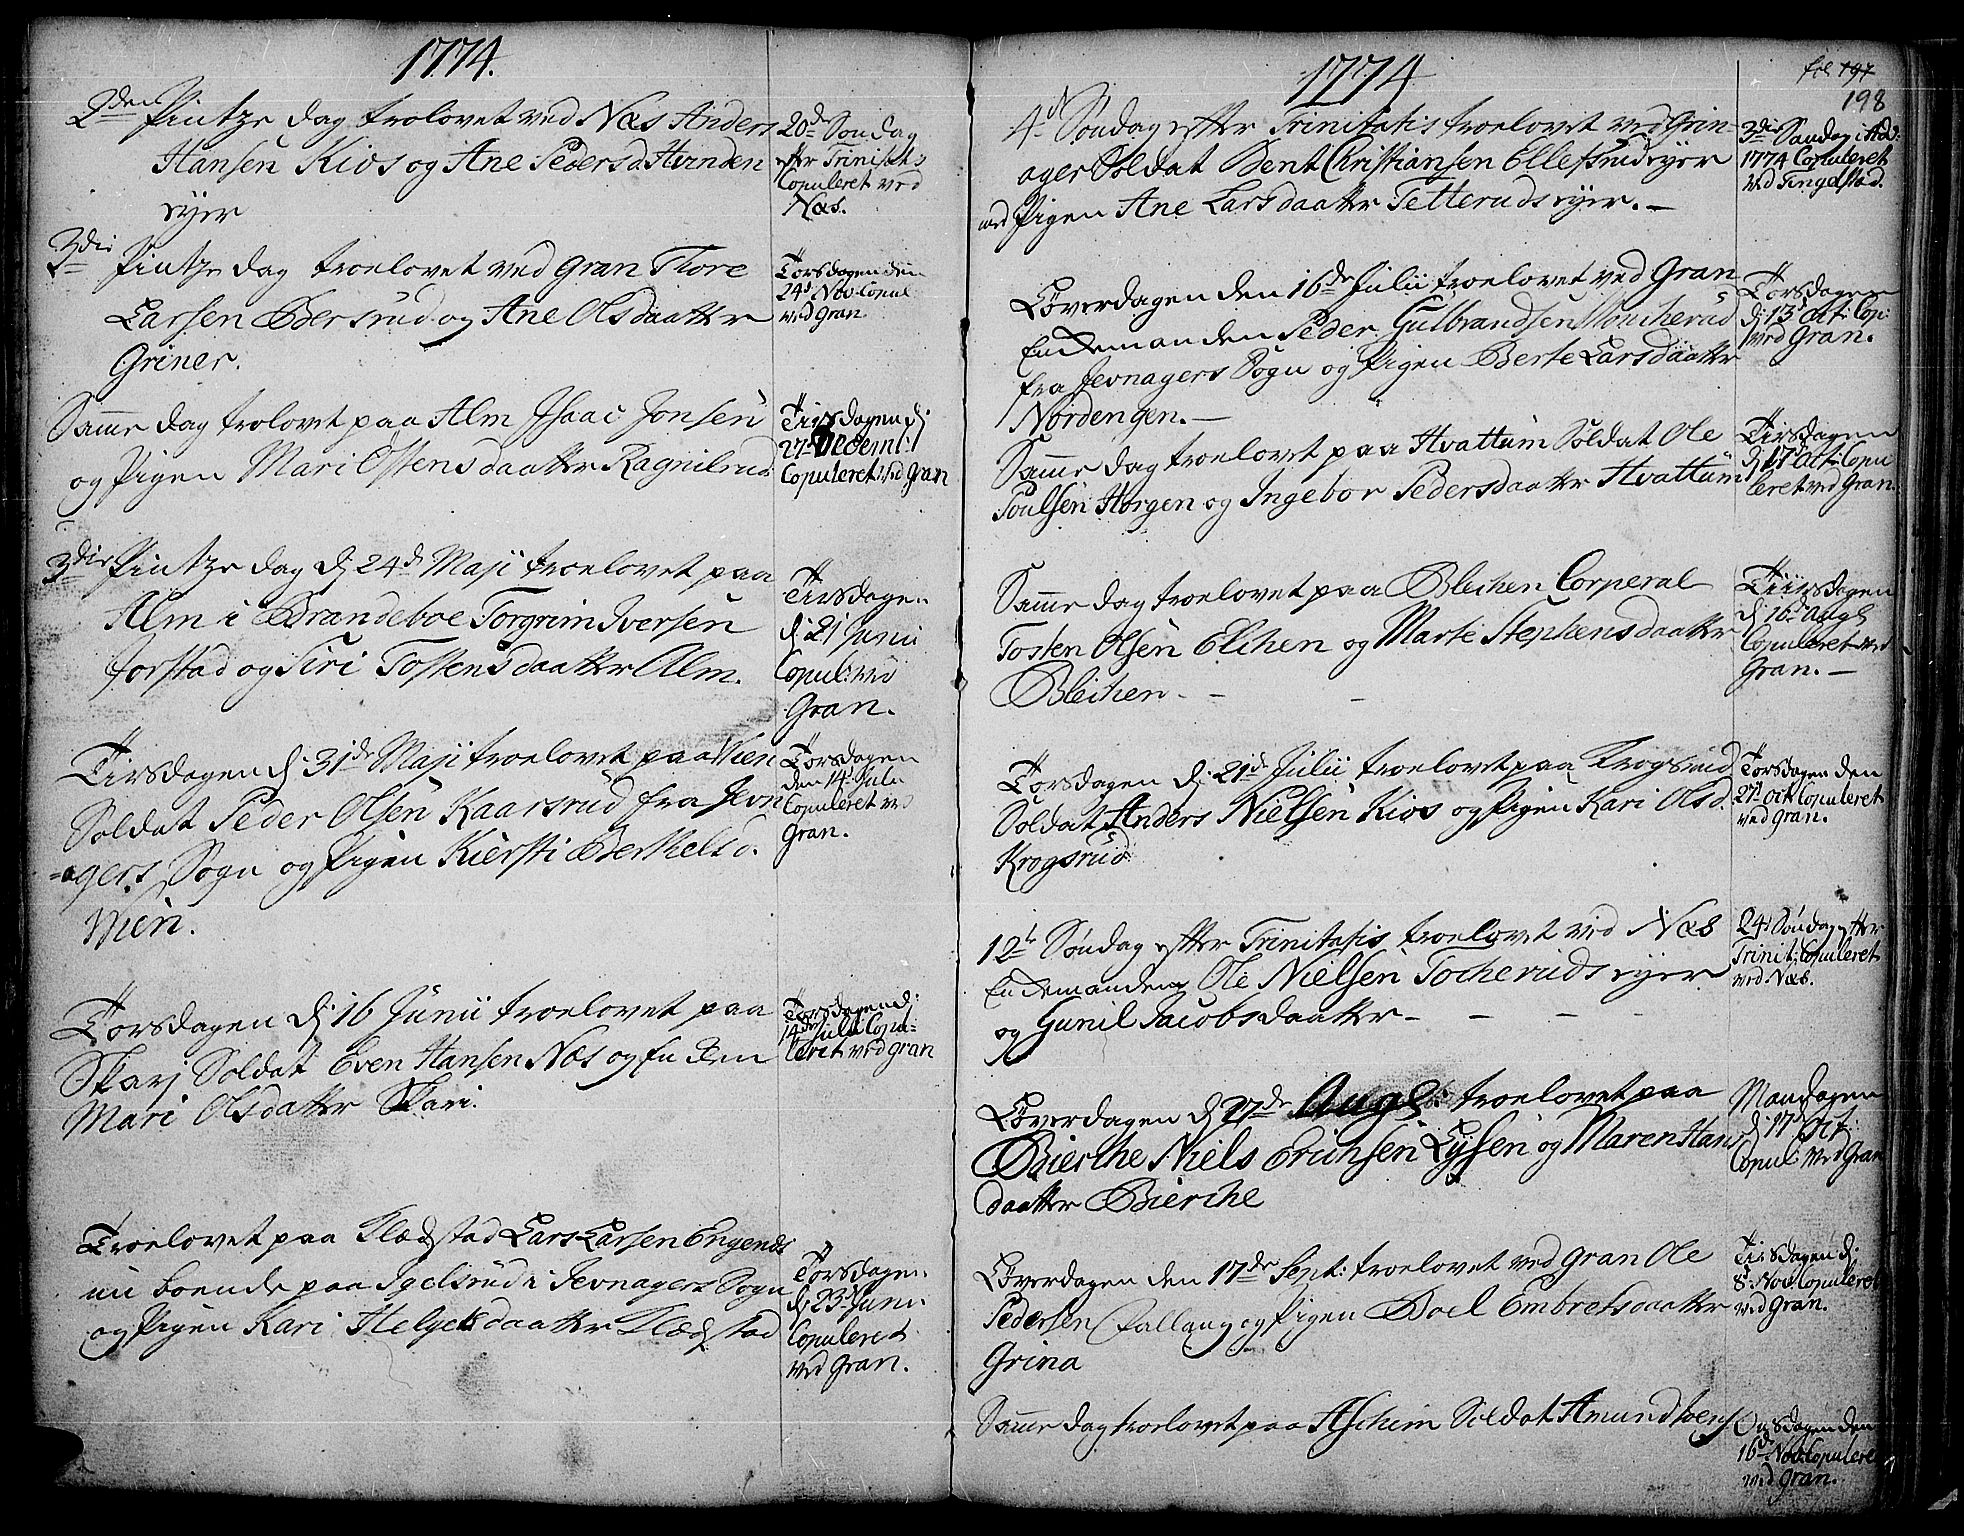 1774.
2den Pintze dag trolovet ved Næs Anders
Hansen Kios og Ane Pedersd. Hvinden
eyer
20de Søndag
efter Trinitatis
Copuleret ved
Næs.
3die Pintze dag troelovet ved Gran Thore
Larsen Edersrud og Ane Olsdaatter
Griner.
Torsdagen den
24d Nov: Copul
ved Gran.
Samme dag trolovet paa Alm Isaac Jonsen
og Pigen Mari Østensdaatter Ragnilsrud
Tirsdagen d:
27d Decemb:
Copuleret ved Gran
3die Pintze dag d: 24d Maji troelovet paa
Alm i Brandeboe Torgrim Iversen
Jorstad og Siri Tostensdaatter Alm.
Tirsdagen
d: 21 Junii
Copul: ved
Gran.
Tirsdagen d: 31de Maji troelovet paa Wien
Soldat Peder Olsen Kaarsrud fra Jevn
=agers Sogn og Pigen Kiersti Berthelsd.
Wien.
Torsdagen
den 14d Julii
Copuleret ved
Gran.
Torsdagen d: 16 Junii troelovet paa
Skari Soldat Even Hansen Næs og
Mari Olsdatter Skari.
Torsdagen d:
14de Julii Copu-
leret ved Gran
Troelovet paa Flædstad Lars Larsen Engends
nu boende paa Igelsrud i Jevnagers Sogn
og Pigen Kari Helgesdaatter Flædstad
Torsdagen
d: 23 Junii
Copuleret
ved Gran.
1774
fol 197
198
4d Søndag efter Trinitatis troelovet ved Grin-
ager Soldat Bent Christiansen Ellefsrudeyer
med Pigen Ane Larsdaatter Tetterudseyer.-
3die Søndag i Adv:
1774 Copuleret
ved Tingelstad.
Løverdagen den 16de Julii troelovet ved Gran
Enckemanden Peder Gulbrandsen Moncherud
fra Jevnagers Sogn og Pigen Berte Larsdaatter
Nordengen.-
Torsdagen
d: 13d Oct: Cop:
ved Gran.
Samme dag troelovet paa Hvattum Soldat Ole
Poulsen Horgen og Ingebor Pedersdaatter Hvattum
Tirsdagen
d: 17d Oct: Copu
leret ved Gran.
Samme dag troelovet paa Bleichen Corperal
Tosten Olsen Elchen og Marte Stephensdaatter
Bleichen - - -
Tiirsdagen
d: 16d Aug:
Copuleret ved
Gran.-
Torsdagen d: 21de Julii troelovet paa Krogsrud
Soldat Anders Nielsen Kios og Pigen Kari Olsd.
Krogsrud
Torsdagen den
27d Oct Copuleret
ved Gran.
12te Søndag efter Trinitatis troelovet ved Næs
Enckemanden Ole Nielsen Tocherudseyer
og Gunil Jacobsdaatter - - - - -
24d Søndag efter
Trinit: Copuleret
ved Næs.
Løverdagen d: 27de Aug: troelovet paa
Bierche Niels Erichsen Lysen og Maren Hans
daatter Bierche
Mandagen
d: 17d Oct:
Copul ved Gran
Løverdagen den 17de Sept: troelovet ved Gran Ole
Pedersen Fallang og Pigen Boel Embretsdaatter
Grina
Tirsdagen d:
8d Nov: Copuleret
ved Gran.
Samme dag troelovet paa Aschim Soldat Amund
Onsdagen den
16d Nov: Copuleret
ved Gran.